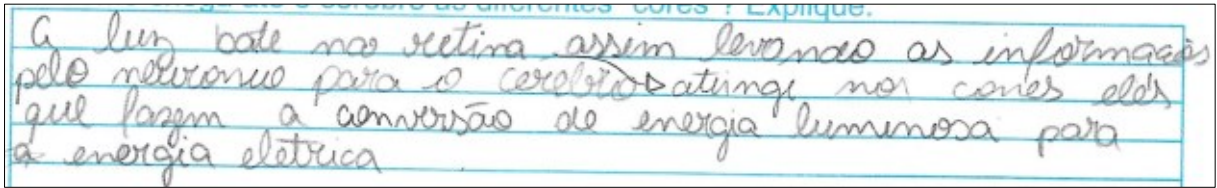 chega até o cérebro as diferentes "cores"? Explique.
A luz bate na retina assim levando as informações
pelo neuronio para o cerebro atinge nos cones eles
que fazem a conversão de energia luminosa para
a energia eletrica